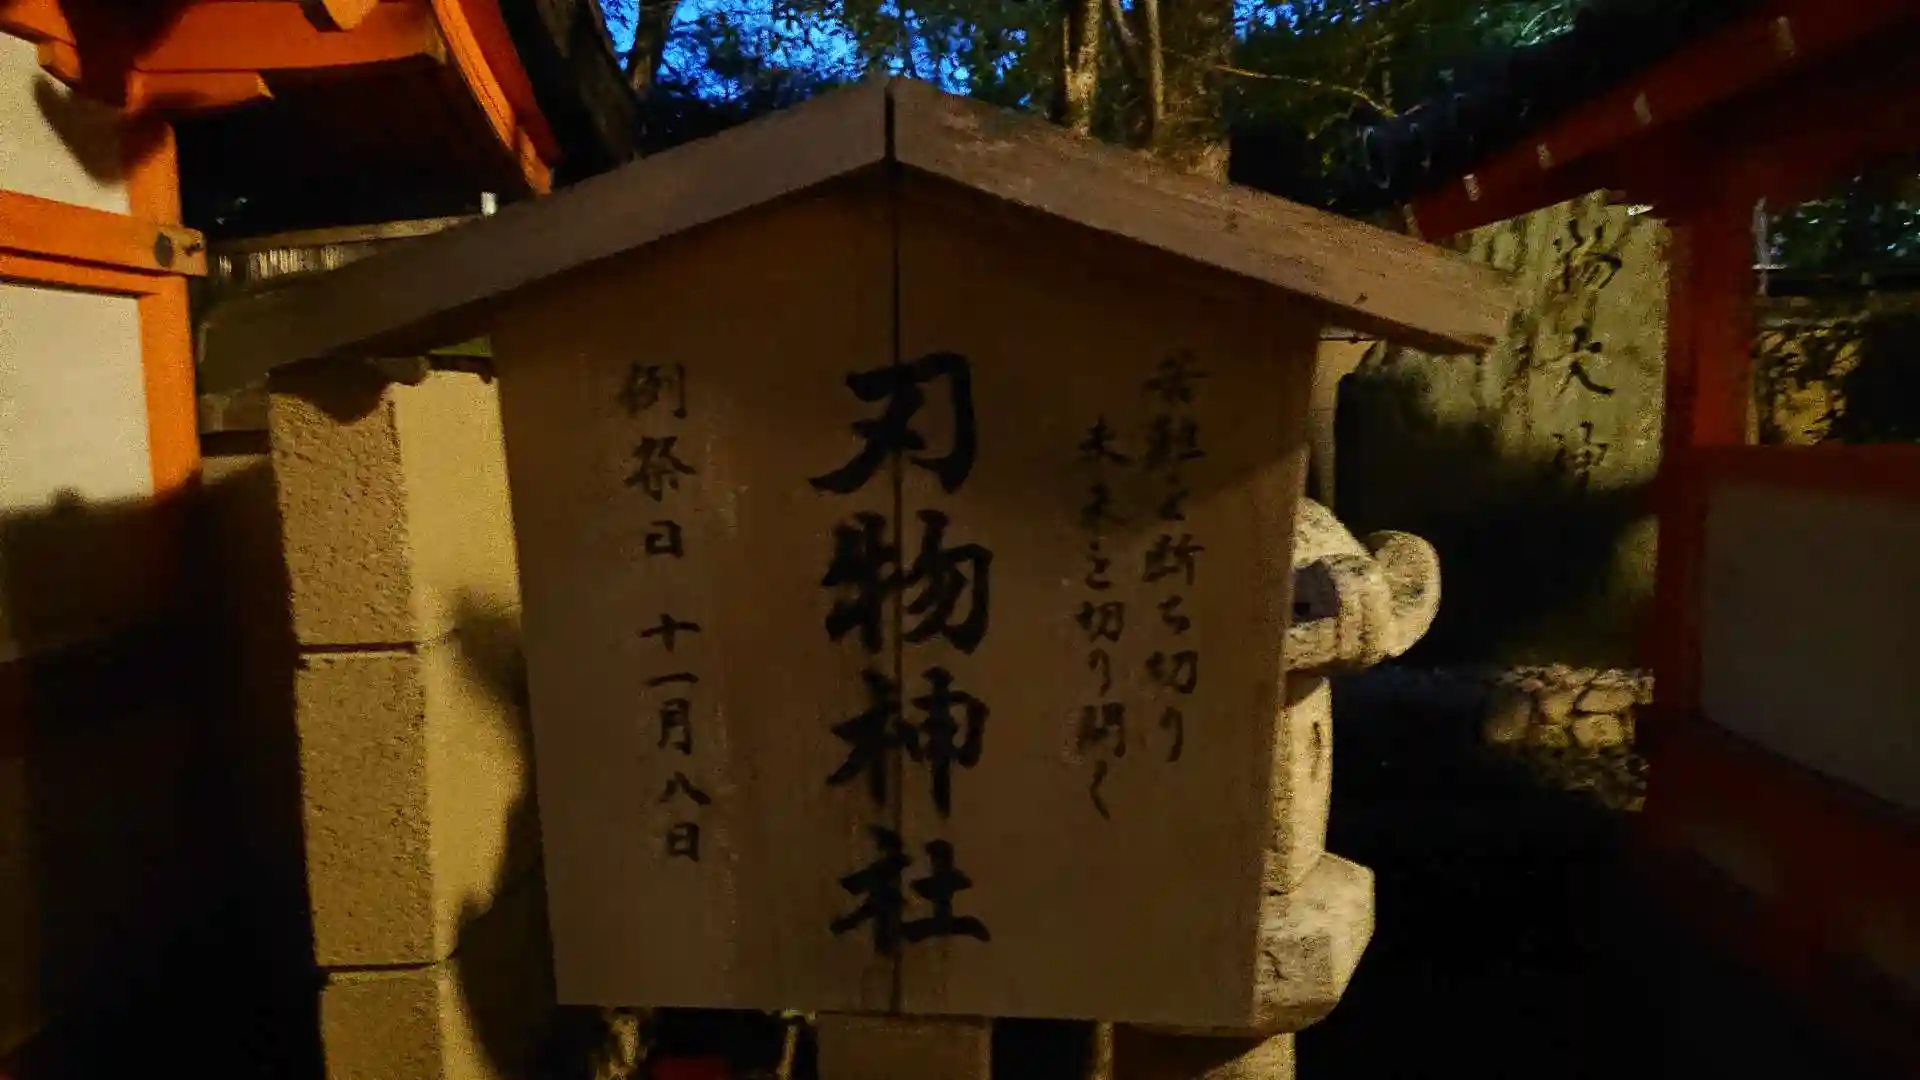 苦難を断ち切り
未来を切り開く
刃物神社
例祭日 十一月八日
物大神